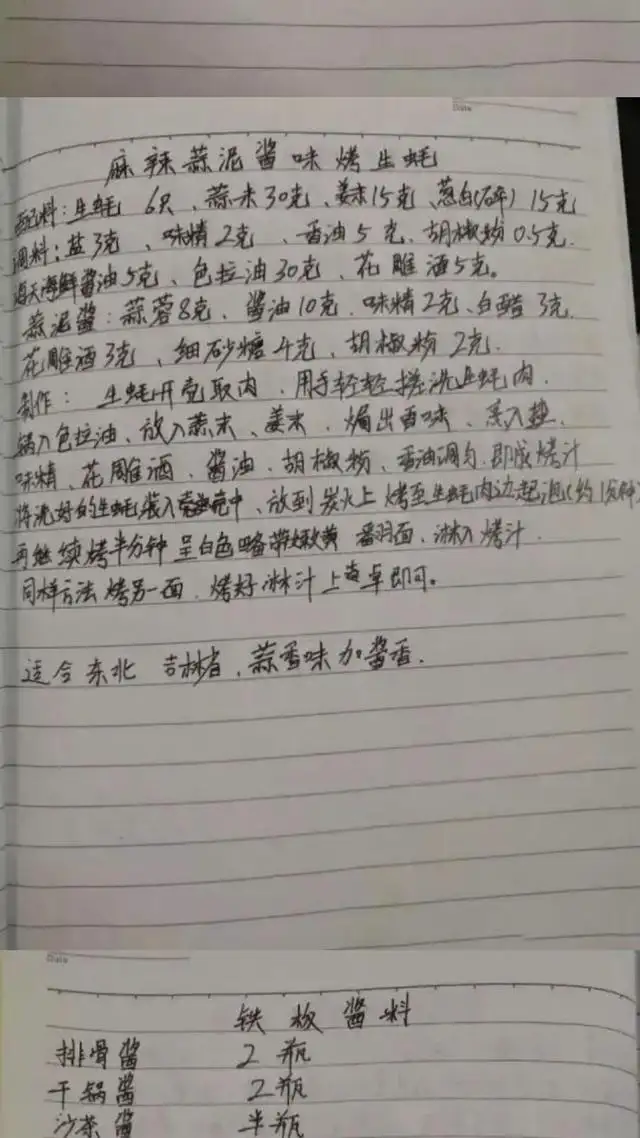 Date
麻辣蒜泥酱味烤生蚝
配料:生蚝 6只、蒜末30克、姜末15克 葱白(碎) 15克
调料:盐3克、味精2克、香油5克、胡椒粉0.5克.
海天海鲜酱油5克、色拉油30克、花雕酒5克。
蒜泥酱:蒜蓉8克、酱油10克.味精2克、白醋3克.
花雕酒3克、细砂糖4克、胡椒粉2克.
制作: 生蚝开壳取肉,用手轻轻搓洗生蚝肉.
锅入色拉油、放入蒜末、姜末、焗出香味、
味精、花雕酒、酱油、胡椒粉、香油调匀.即成烤汁
将洗好的生蚝装入壳中、放到炭火上烤至生蚝肉边起泡(约1分钟)
再继续烤半分钟呈白色略带嫩黄 翻面,淋入烤汁.
同样方法烤另一面.烤好淋汁上桌即可。
适合东北 吉林省,蒜香味加酱香.
Date
铁板酱料
排骨酱 2瓶
干锅酱 2瓶
沙茶酱 半瓶